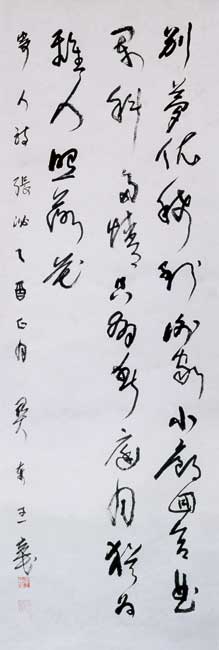 別夢依稀到謝家小廊迴合曲
闌斜多情只有春庭月猶為
離人照落花
寄人詩張泌乙酉正月東王